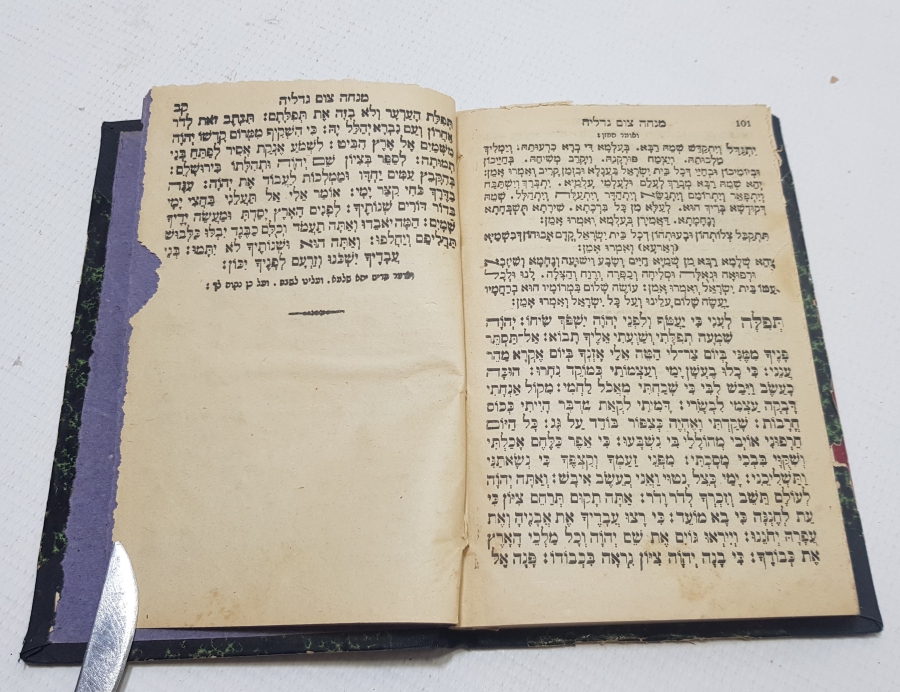 101 מנחה צום גדליה
ואומר חזן:
יִתְגַּדַּל וְיִתְקַדַּשׁ שְׁמֵהּ רַבָּא. בְּעָלְמָא דִּי בְרָא כִרְעוּתֵהּ. וְיַמְלִיךְ
מַלְכוּתֵהּ. וְיַצְמַח פּוּרְקָנֵהּ. וִיקָרֵב מְשִׁיחֵהּ. בְּחַיֵּיכוֹן
וּבְיוֹמֵיכוֹן וּבְחַיֵּי דְכָל בֵּית יִשְׂרָאֵל בַּעֲגָלָא וּבִזְמַן קָרִיב וְאִמְרוּ אָמֵן:
יְהֵא שְׁמֵהּ רַבָּא מְבָרַךְ לְעָלַם וּלְעָלְמֵי עָלְמַיָּא. יִתְבָּרַךְ וְיִשְׁתַּבַּח
וְיִתְפָּאַר וְיִתְרוֹמַם וְיִתְנַשֵּׂא וְיִתְהַדָּר וְיִתְעַלֶּה וְיִתְהַלָּל. שְׁמֵהּ
דְּקוּדְשָׁא בְּרִיךְ הוּא. לְעֵלָּא מִן כָּל בִּרְכָתָא. שִׁירָתָא תִּשְׁבְּחָתָא
וְנֶחֱמָתָא. דַּאֲמִירָן בְּעָלְמָא וְאִמְרוּ אָמֵן:
תִּתְקַבֵּל צְלוֹתְהוֹן וּבָעוּתְהוֹן דְּכָל בֵּית יִשְׂרָאֵל קֳדָם אֲבוּהוֹן דְּבִשְׁמַיָּא
(וְאַרְעָא) וְאִמְרוּ אָמֵן:
יְהֵא שְׁלָמָא רַבָּא מִן שְׁמַיָּא חַיִּים וְשָׂבָע וִישׁוּעָה וְנֶחָמָה וְשֵׁיזָבָא
וּרְפוּאָה וּגְאֻלָּה וּסְלִיחָה וְכַפָּרָה וְרֶוַח וְהַצָּלָה. לָנוּ וּלְכָל
עַמּוֹ בֵּית יִשְׂרָאֵל וְאִמְרוּ אָמֵן: עוֹשֶׂה שָׁלוֹם בִּמְרוֹמָיו הוּא בְּרַחֲמָיו
יַעֲשֶׂה שָׁלוֹם עָלֵינוּ וְעַל כָּל יִשְׂרָאֵל וְאִמְרוּ אָמֵן:
תְּפִלָּה לְעָנִי כִי יַעֲטֹף וְלִפְנֵי יְהֹוָה יִשְׁפֹּךְ שִׂיחוֹ: יְהֹוָה
שִׁמְעָה תְפִלָּתִי וְשַׁוְעָתִי אֵלֶיךָ תָבוֹא: אַל־תַּסְתֵּר
פָּנֶיךָ מִמֶּנִּי בְּיוֹם צַר־לִי הַטֵּה אֵלַי אָזְנֶךָ בְּיוֹם אֶקְרָא מַהֵר
עֲנֵנִי: כִּי כָלוּ בְעָשָׁן יָמָי וְעַצְמוֹתַי כְּמוֹקֵד נִחָרוּ: הוּכָּה
כָעֵשֶׂב וַיִּבַשׁ לִבִּי כִּי שָׁכַחְתִּי מֵאֲכֹל לַחְמִי: מִקּוֹל אַנְחָתִי
דָּבְקָה עַצְמִי לִבְשָׂרִי: דָּמִיתִי לִקְאַת מִדְבָּר הָיִיתִי כְּכוֹס
חֳרָבוֹת: שָׁקַדְתִּי וָאֶהְיֶה כְּצִפּוֹר בּוֹדֵד עַל גָּג: כָּל הַיּוֹם
חֵרְפוּנִי אוֹיְבָי מְהוֹלָלַי בִּי נִשְׁבָּעוּ: כִּי אֵפֶר כַּלֶּחֶם אָכָלְתִּי
וְשִׁקֻּוַי בִּבְכִי מָסָכְתִּי: מִפְּנֵי זַעַמְךָ וְקִצְפֶּךָ כִּי נְשָׂאתַנִי
וַתַּשְׁלִיכֵנִי: יָמַי כְּצֵל נָטוּי וַאֲנִי כָּעֵשֶׂב אִיבָשׁ: וְאַתָּה יְהֹוָה
לְעוֹלָם תֵּשֵׁב וְזִכְרְךָ לְדֹר וָדֹר: אַתָּה תָקוּם תְּרַחֵם צִיּוֹן כִּי
עֵת לְחֶנְנָהּ כִּי בָא מוֹעֵד: כִּי רָצוּ עֲבָדֶיךָ אֶת אֲבָנֶיהָ וְאֶת
עֲפָרָהּ יְחֹנֵנוּ: וְיִירְאוּ גוֹיִם אֶת שֵׁם יְהֹוָה וְכָל מַלְכֵי הָאָרֶץ
אֶת כְּבוֹדֶךָ: כִּי בָנָה יְהֹוָה צִיּוֹן נִרְאָה בִּכְבוֹדוֹ: פָּנָה אֶל
מנחה צום גדליה קב
תְּפִלַּת הָעַרְעָר וְלֹא בָזָה אֶת תְּפִלָּתָם: תִּכָּתֶב זֹאת לְדֹר
אַחֲרוֹן וְעַם נִבְרָא יְהַלֶּל יָהּ: כִּי הִשְׁקִיף מִמְּרוֹם קָדְשׁוֹ יְהֹוָה
מִשָּׁמַיִם אֶל אֶרֶץ הִבִּיט: לִשְׁמֹעַ אֶנְקַת אָסִיר לְפַתֵּחַ בְּנֵי
תְמוּתָה: לְסַפֵּר בְּצִיּוֹן שֵׁם יְהֹוָה וּתְהִלָּתוֹ בִּירוּשָׁלָיִם:
בְּהִקָּבֵץ עַמִּים יַחְדָּו וּמַמְלָכוֹת לַעֲבוֹד אֶת יְהֹוָה: עִנָּה
בַדֶּרֶךְ כֹּחִי קִצַּר יָמָי: אוֹמַר אֵלִי אַל תַּעֲלֵנִי בַּחֲצִי יָמָי
בְּדוֹר דּוֹרִים שְׁנוֹתֶיךָ: לְפָנִים הָאָרֶץ יָסַדְתָּ וּמַעֲשֵׂה יָדֶיךָ
שָׁמָיִם: הֵמָּה יֹאבֵדוּ וְאַתָּה תַעֲמֹד וְכֻלָּם כַּבֶּגֶד יִבְלוּ כַּלְּבוּשׁ
תַּחֲלִיפֵם וְיַחֲלֹפוּ: וְאַתָּה הוּא וּשְׁנוֹתֶיךָ לֹא יִתָּמּוּ: בְּנֵי
עֲבָדֶיךָ יִשְׁכּוֹנוּ וְזַרְעָם לְפָנֶיךָ יִכּוֹן:
ואומר קדיש יהא שלמא. ועלינו לשבח. ועל כן נקוה לך: